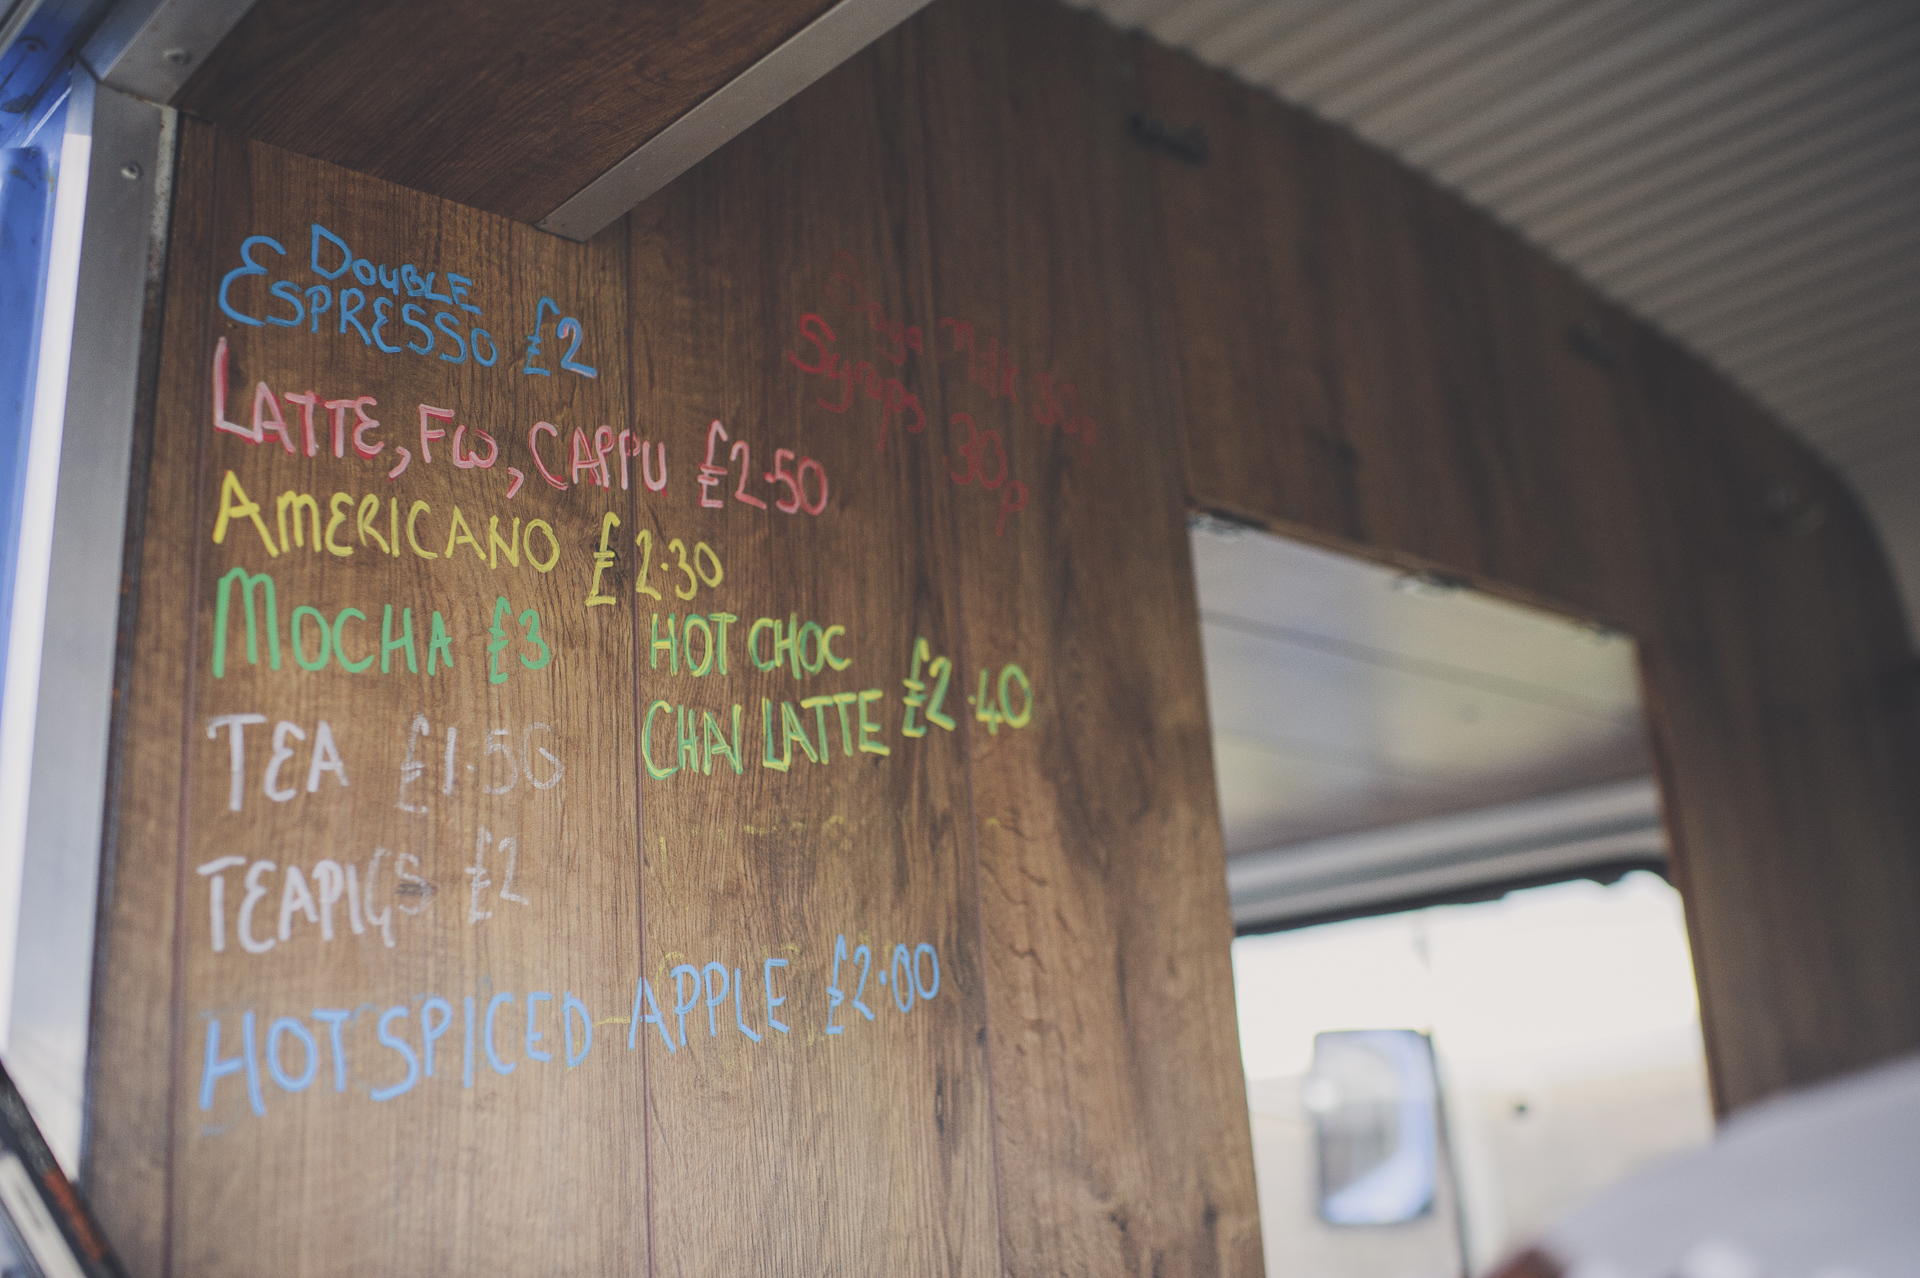 DOUBLE
ESPRESSO £2
Soya Milk 30p
Syrups 30p
LATTE, FW, CAPPU £2.50
AMERICANO £2.30
MOCHA £3
HOT CHOC
CHAI LATTE £2.40
TEA £1.50
TEAPIGS £2
HOT SPICED APPLE £2.00